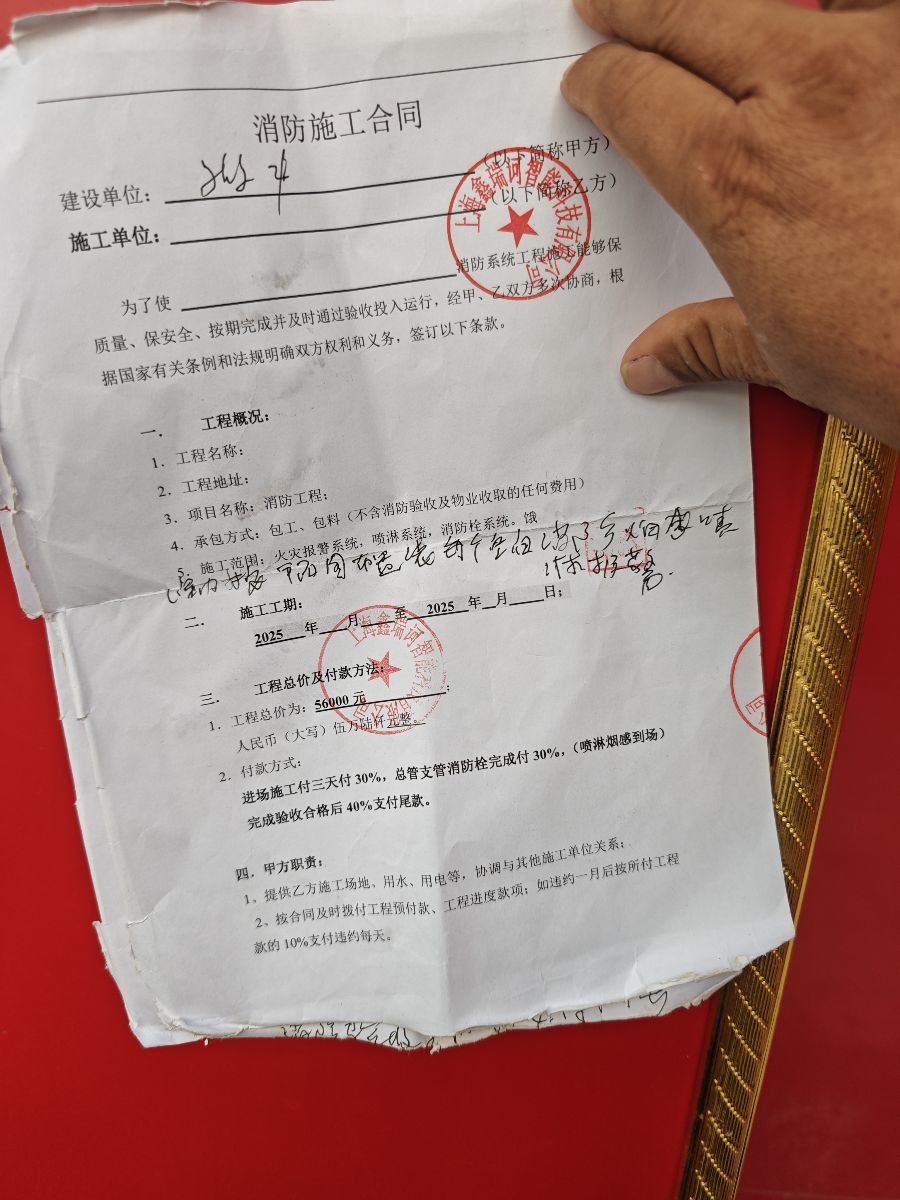 消防施工合同
建设单位：（以下简称甲方）
施工单位：（以下简称乙方）
上海鑫瑞诃智能科技有限公司
为了使消防系统工程施工能够保
质量、保安全、按期完成并及时通过验收投入运行，经甲、乙双方多次协商，根
据国家有关条例和法规明确双方权利和义务，签订以下条款。
一. 工程概况：
1. 工程名称：
2. 工程地址：
3. 项目名称：消防工程；
4. 承包方式：包工、包料（不含消防验收及物业收取的任何费用）
5. 施工范围：火灾报警系统，喷淋系统，消防栓系统。饿
二. 施工工期：
2025 年 月 至 2025 年 月 日；
三. 工程总价及付款方法：
1. 工程总价为：56000 元；
上海鑫瑞诃智能科技有限公司
人民币（大写）伍万陆仟元整。
2. 付款方式：
进场施工付三天付 30%，总管支管消防栓完成付 30%，（喷淋烟感到场）
完成验收合格后 40%支付尾款。
四. 甲方职责：
1、提供乙方施工场地、用水、用电等，协调与其他施工单位关系；
2、按合同及时拨付工程预付款、工程进度款项；如违约一月后按所付工程
款的 10%支付违约每天。